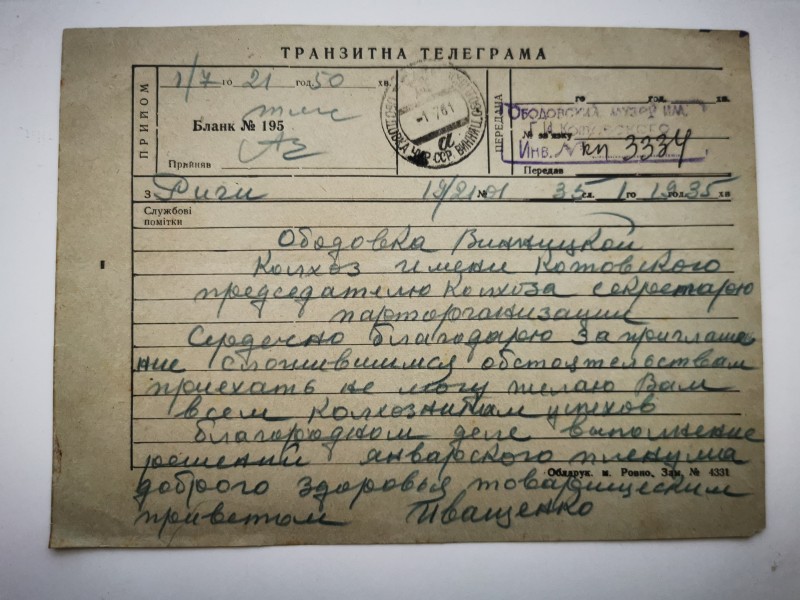 ТРАНЗИТНА ТЕЛЕГРАМА
ПРИЙОМ
1/7 го 21 год. 50 хв.
Бланк № 195
Прийняв
ПЕРЕДАЧА
го год. хв.
№ зв'язку
Передав
ОБОДОВСКИЙ МУЗЕЙ ИМ.
Г.И. КОТОВСКОГО
Инв. № КП 3334
З Риги 19/2101 № 35 сл. 1 го 19 год. 35 хв
Службові
помітки
Ободовка Винницкой
Колхоз имени Котовского
председателю колхоза секретарю
парторганизации
Сердечно благодарю за приглаше
ние сложившимся обстоятельствам
приехать не могу желаю Вам
всем колхозникам успехов
благородном деле выполнение
решений январского пленума
Обддрук. м. Ровно, Зам. № 4331
доброго здоровья товарищеским
приветом Иващенко